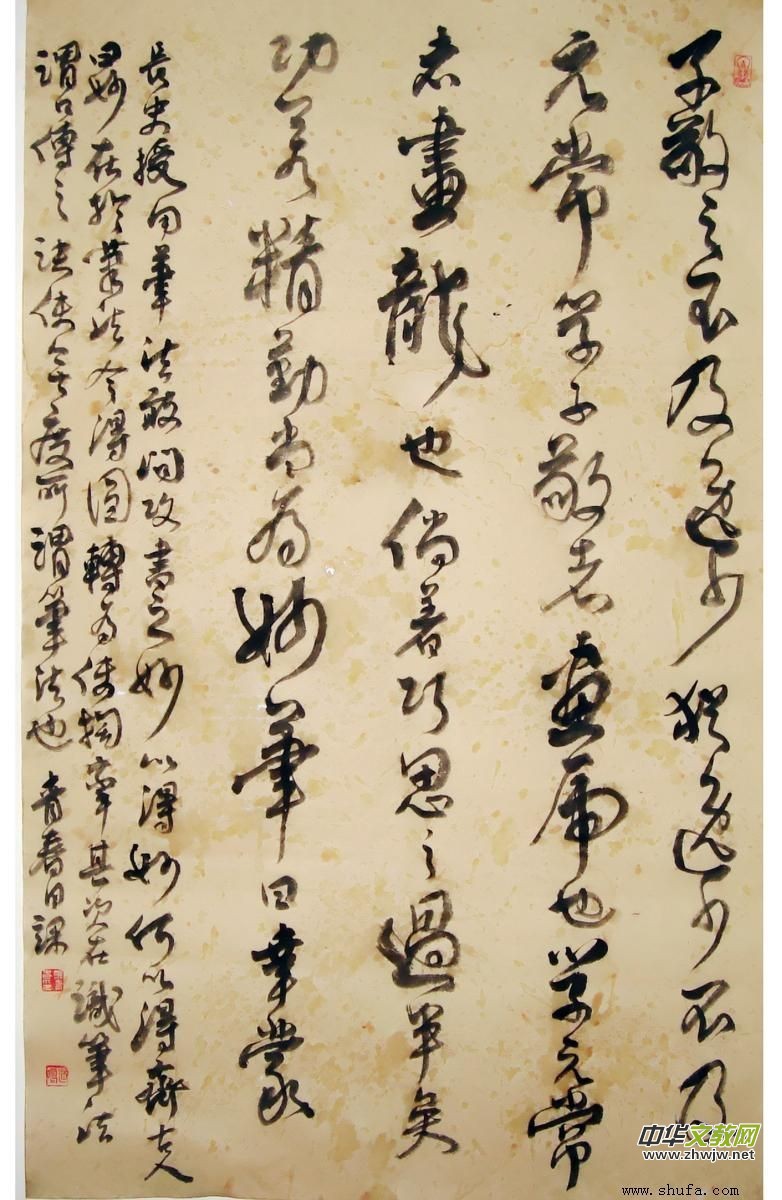 子敬之不及逸少猶逸少不及
元常學子敬者畫虎也學元常
者畫龍也倘著巧思之過半矣
功若精勤當為妙筆曰幸蒙
長史授用筆法敢問攻書之妙以得妙何以得齊古人
曰妙在執筆法令得圓轉勿使拘攣其次在識筆法
謂口傳之訣使無度所謂筆法也 青春日課
中华文教网
www.zhwjw.net
www.shufa.com